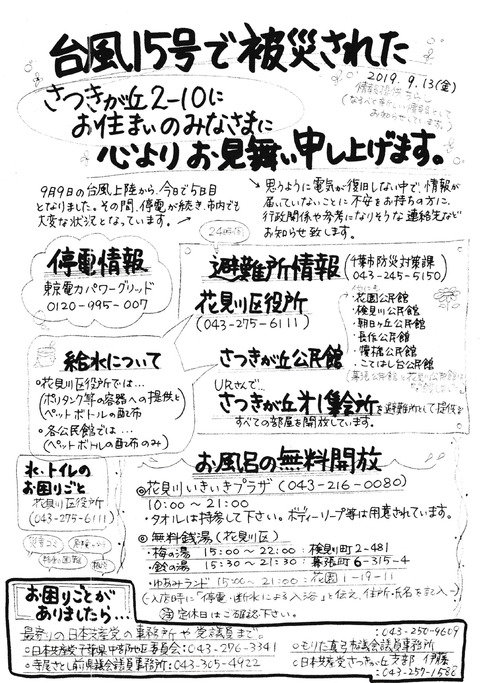 台風15号で被災された
2019.9.13(金)
さつきが丘2-10に
お住まいのみなさまに
心よりお見舞い申し上げます。
9月9日の台風上陸から、今日で5日目
となりました。その間、停電が続き、市内でも
大変な状況となっています。
思うように電気が復旧しない中で、情報が
届いていないことに不安をお持ちの方に、
行政関係や参考になりそうな連絡先など
お知らせ致します。
停電情報
東京電力パワーグリッド
0120-995-007
24時間
避難所情報
(千葉市防災対策課
043-245-5150)
花見川区役所
(043-275-6111)
他にも
・花園公民館
・検見川公民館
・朝日ヶ丘公民館
・長作公民館
・犢橋公民館
・こてはし台公民館
給水について
○花見川区役所では…
(ポリタンク等の容器への提供と
ペットボトルの配布)
○各公民館では…
(ペットボトルの配布のみ)
さつきが丘公民館
URさんで…
さつきが丘オ1集会所を避難所として提供
すべての部屋を開放しています。
水、トイレの
お困りごと
花見川区役所
(043-275-6111)
お風呂の無料開放
◎花見川いきいきプラザ(043-216-0080)
10:00~21:00
・タオルは持参して下さい。ボディーソープ等は用意されています。
◎無料銭湯(花見川区)
・梅の湯 15:00~22:00:検見町2-481
・鈴の湯 15:30~21:30:幕張町6-315-4
・ゆあみランド 15:00~21:00:花園1-19-11
(入店時に「停電・断水による入浴」と伝え、住所・氏名を記入)
定休日はご確認下さい。
お困りごとが
ありましたら…
最寄りの日本共産党の事務所や党議員まで。
○日本共産党千葉県中部地区委員会:043-276-3341
○寺尾さとし前県議会議員事務所:043-305-4922
:043-250-9609
○もりた真弓市議会議員事務所
○日本共産党さつきが丘支部 伊藤
:043-257-1580